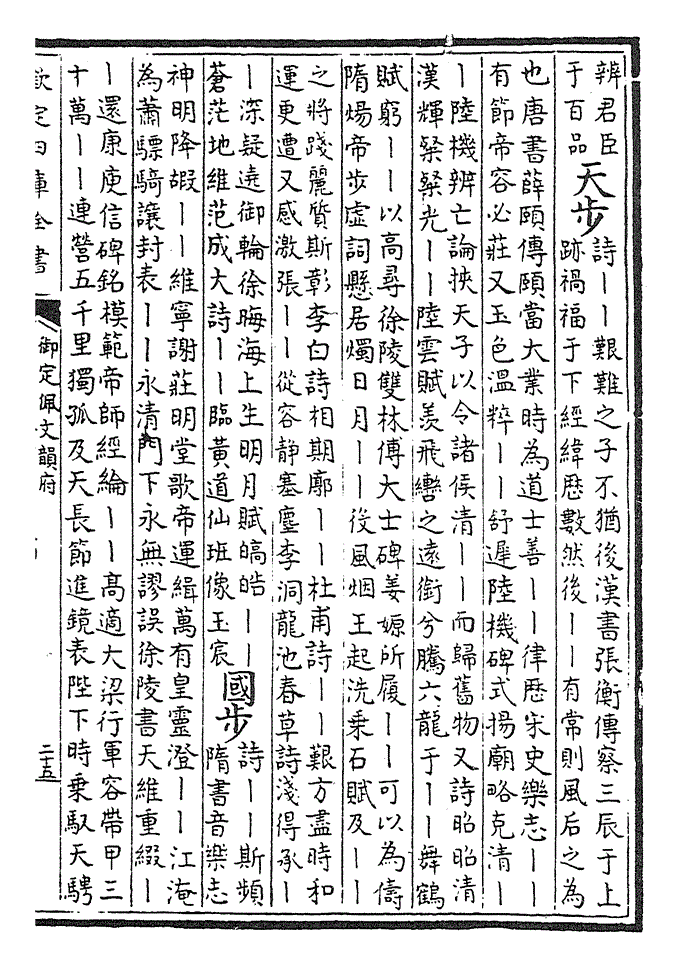 辨君臣
于百品
天步
詩丨丨艱難之子不猶後漢書張衡傳察三辰于上
跡禍福于下經緯歷數然後丨丨有常則風后之為
也唐書薛頤傳頤當大業時為道士善丨丨律歷宋史樂志丨丨
有節帝容必莊又玉色温粹丨丨舒遲陸機碑式揚廟略克清丨
丨陸機辨亡論挾天子以令諸侯清丨丨而歸舊物又詩昭昭清
漢輝粲粲光丨丨陸雲賦羨飛轡之遠銜兮騰六龍于丨丨舞鶴
賦窮丨丨以高尋徐陵雙林傅大士碑姜嫄所履丨丨可以為儔
隋煬帝步虛詞懸居燭日月丨丨役風烟王起洗乗石賦及丨丨
之將踐麗質斯彰李白詩相期廓丨丨杜甫詩丨丨艱方盡時和
運更遭又感激張丨丨從容静塞塵李洞龍池春草詩淺得承丨
丨深疑逺御輪徐晦海上生明月賦皜皓丨丨
蒼茫地維范成大詩丨丨臨黄道仙班像玉宸
國步
詩丨丨斯頻
隋書音樂志
神明降嘏丨丨維寧謝莊明堂歌帝運緝萬有皇靈澄丨丨江淹
為蕭驃騎讓封表丨丨永清門下永無謬誤徐陵書天維重綴丨
丨還康庾信碑銘模範帝師經綸丨丨高適大梁行軍容帶甲三
十萬丨丨連營五千里獨孤及天長節進鏡表陛下時乗馭天騁
欽定四庫全書
御定佩文韻府
二十五